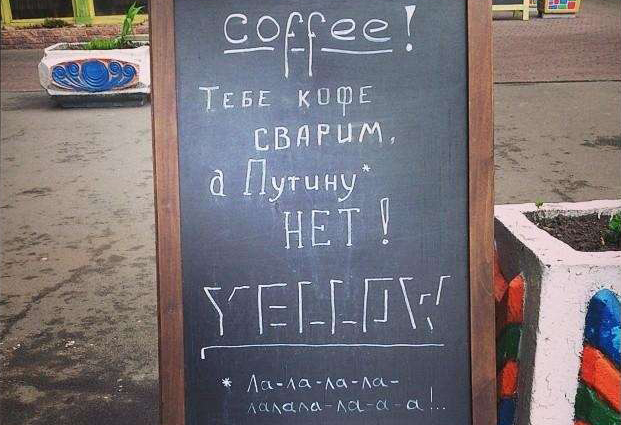 coffee!
Тебе кофе
сварим,
а Путину*
НЕТ!
YELLOW
* Ла-ла-ла-ла-
лалала-ла-а-а!..